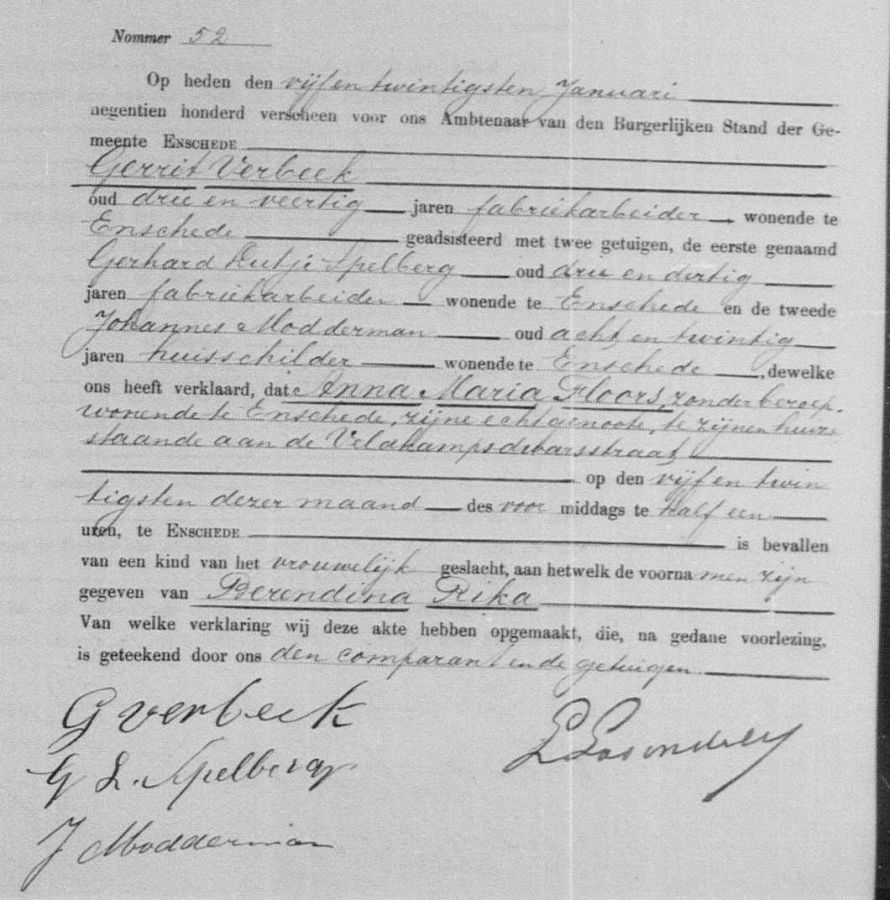 Nommer 52
Op heden den vijf en twintigsten Januari
negentien honderd verscheen voor ons Ambtenaar van den Burgerlijken Stand der Ge-
meente ENSCHEDE
Gerrit Verbeek
oud drie en veertig jaren fabriekarbeider, wonende te
Enschede geadsisteerd met twee getuigen, de eerste genaamd
Gerhard Lutje Spelberg oud drie en dertig
jaren fabriekarbeider wonende te Enschede en de tweede
Johannes Modderman oud acht en twintig
jaren huisschilder wonende te Enschede, dewelke
ons heeft verklaard, dat Anna Maria Floors, zonder beroep,
wonende te Enschede, zijne echtgenoote, te zijnen huize
staande aan de
op den vijf en twin
tigsten dezer maand des voor middags te half een
uren, te ENSCHEDE is bevallen
van een kind van het vrouwelijk geslacht, aan hetwelk de voornamen zijn
gegeven van Berendina Rika
Van welke verklaring wij deze akte hebben opgemaakt, die, na gedane voorlezing,
is geteekend door ons den comparant en de getuigen.
G Verbeek
G L. Spelberg
J Modderman